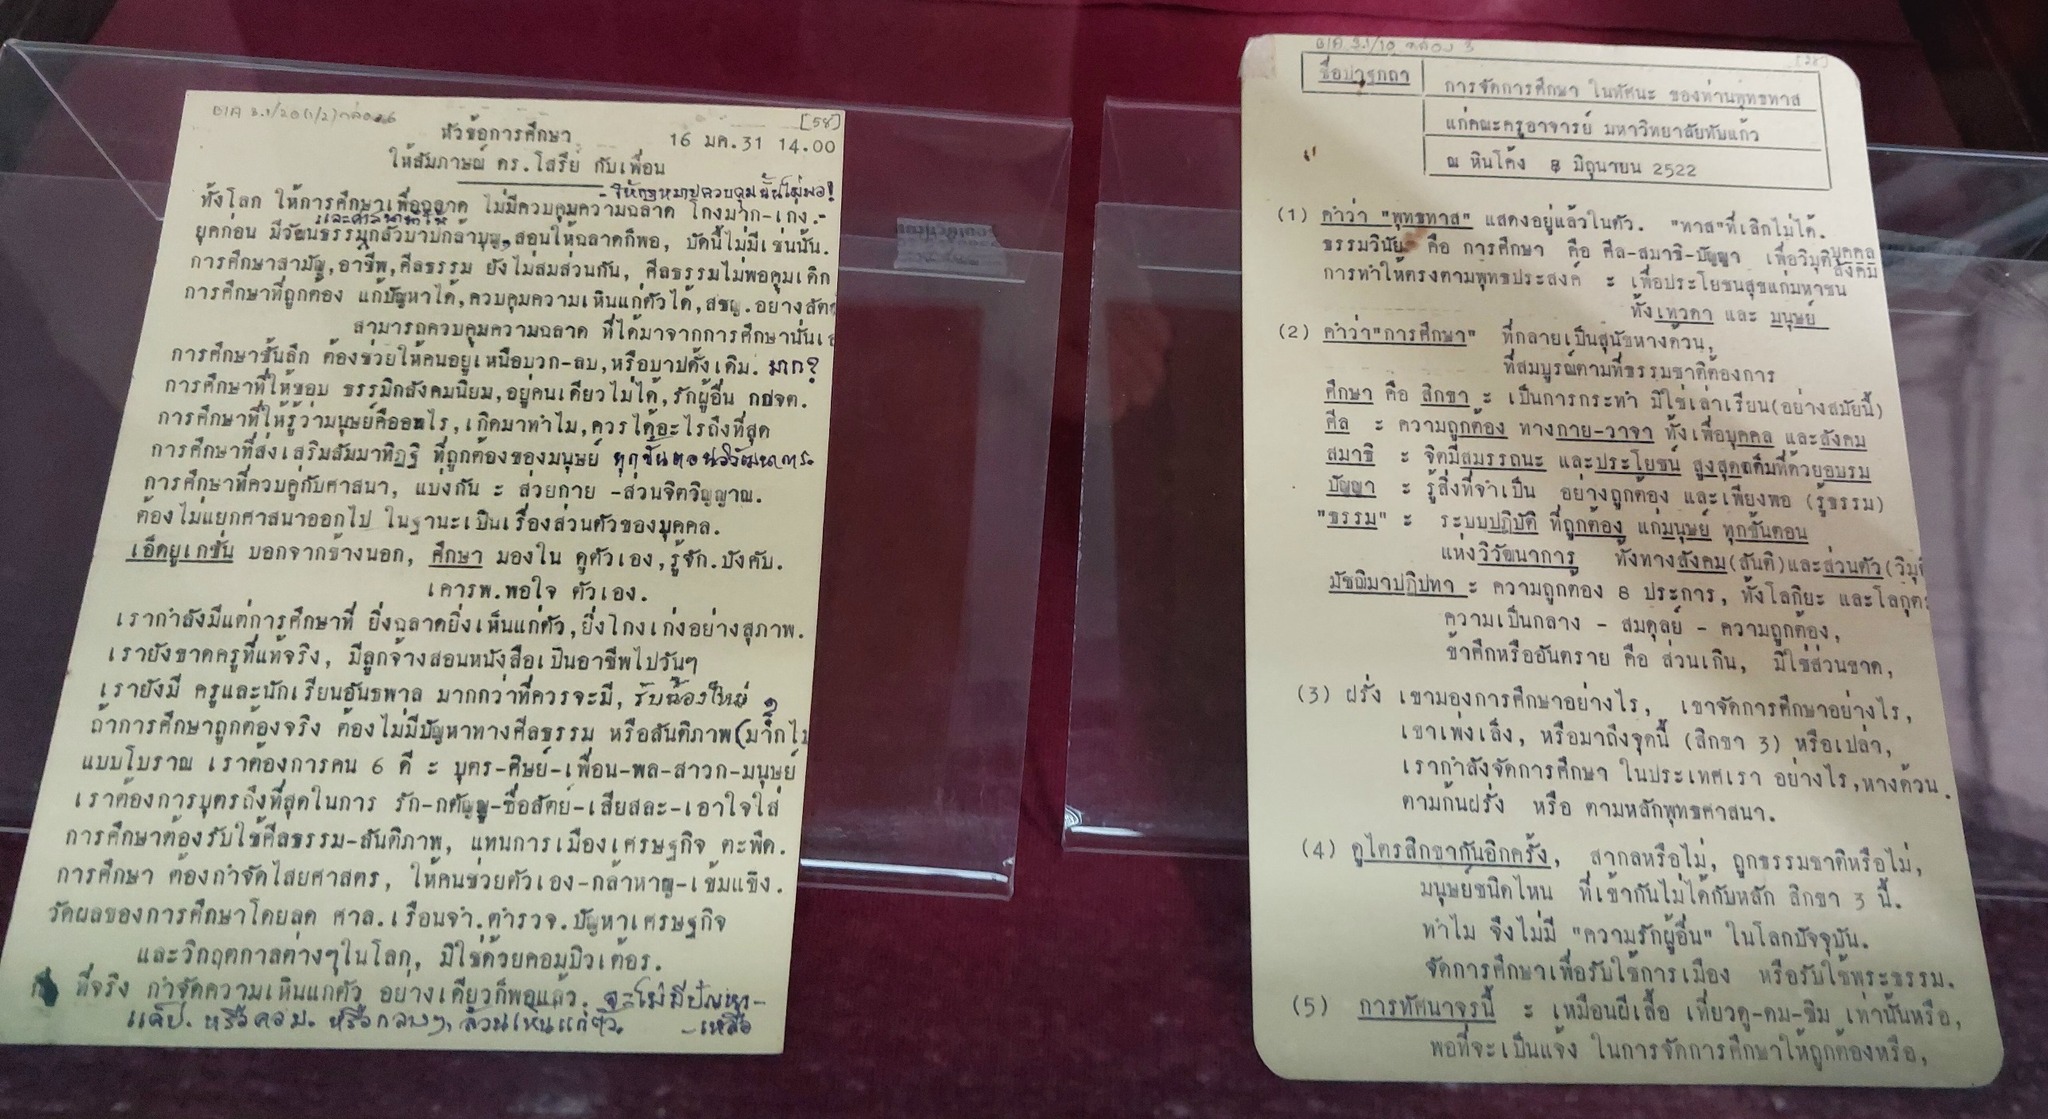 BIA 3.1/20(1/2) กล่อง 6
[58]
หัวข้อการศึกษา 16 มค.31 14.00
ให้สัมภาษณ์ ดร.โสรีย์ กับเพื่อน
- ใช้กฎหมายควบคุมนั้นไม่พอ!
ทั้งโลก ให้การศึกษาเพื่อฉลาด ไม่มีควบคุมความฉลาด โกงมาก-เก่ง.-
และศาสนาให้
ยุคก่อน มีวัฒนธรรมกลัวบาปกล้าบุญ,สอนให้ฉลาดก็พอ, บัดนี้ไม่มีเช่นนั้น.
การศึกษาสามัญ,อาชีพ,ศีลธรรม ยังไม่สมส่วนกัน, ศีลธรรมไม่พอคุมเด็ก
การศึกษาที่ถูกต้อง แก้ปัญหาได้,ควบคุมความเห็นแก่ตัวได้,สชญ.อย่างสัต
สามารถควบคุมความฉลาด ที่ได้มาจากการศึกษานั่นเ
การศึกษาชั้นลึก ต้องช่วยให้คนอยู่เหนือบวก-ลบ,หรือบาปดั้งเดิม. มาก?
การศึกษาที่ให้ชอบ ธรรมิกสังคมนิยม,อยู่คนเดียวไม่ได้,รักผู้อื่น กอจต.
การศึกษาที่ให้รู้ว่ามนุษย์คืออะไร,เกิดมาทำไม,ควรได้อะไรถึงที่สุด
การศึกษาที่ส่งเสริมสัมมาทิฏฐิ ที่ถูกต้องของมนุษย์ ทุกขั้นตอนวิวัฒนาการ
การศึกษาที่ควบคู่กับศาสนา, แบ่งกัน ะ ส่วยกาย -ส่วนจิตวิญญาณ.
ต้องไม่แยกศาสนาออกไป ในฐานะเป็นเรื่องส่วนตัวของบุคคล.
เอ็ดยูเกชั่น บอกจากข้างนอก, ศึกษา มองใน ดูตัวเอง,รู้จัก.บังคับ.
เคารพ.พอใจ ตัวเอง.
เรากำลังมีแต่การศึกษาที่ ยิ่งฉลาดยิ่งเห็นแก่ตัว,ยิ่งโกงเก่งอย่างสุภาพ.
เรายังขาดครูที่แท้จริง, มีลูกจ้างสอนหนังสือเป็นอาชีพไปวันๆ
เรายังมี ครูและนักเรียนอันธพาล มากกว่าที่ควรจะมี, รับน้องใหม่
ถ้าการศึกษาถูกต้องจริง ต้องไม่มีปัญหาทางศีลธรรม หรือสันติภาพ
แบบโบราณ เราต้องการคน 6 ดี ะ บุตร-ศิษย์-เพื่อน-พล-สาวก-มนุษย์
เราต้องการบุตรถึงที่สุดในการ รัก-กตัญญู-ซื่อสัตย์-เสียสละ-เอาใจใส่
การศึกษาต้องรับใช้ศีลธรรม-สันติภาพ, แทนการเมืองเศรษฐกิจ ตะพึด.
การศึกษา ต้องกำจัดไสยศาสตร, ให้คนช่วยตัวเอง-กล้าหาญ-เข้มแข็ง.
วัดผลของการศึกษาโดยลด ศาล.เรือนจำ.ตำรวจ.ปัญหาเศรษฐกิจ
และวิกฤตกาลต่างๆในโลก, มิใช่ด้วยคอมปิวเต้อร.
ที่จริง กำจัดความเห็นแกตัว อย่างเดียวก็พอแล้ว. จะไม่มีปัญหา-
-เหลือ
หรือคอม. หรือกลางๆ, ล้วนเห็นแก่ตัว.
BIA 3.1/10 กล่อง 3
[28]
ชื่อปาฐกถา
การจัดการศึกษา ในทัศนะ ของท่านพุทธทาส
แก่คณะครูอาจารย์ มหาวิทยาลัยทับแก้ว
ณ หินโค้ง 8 มิถุนายน 2522
(1) คำว่า "พุทธทาส" แสดงอยู่แล้วในตัว. "ทาส"ที่เลิกไม่ได้.
ธรรมวินัย คือ การศึกษา คือ ศีล-สมาธิ-ปัญญา เพื่อวิมุติบุคคล
สังคม
การทำให้ตรงตามพุทธประสงค์ ะ เพื่อประโยชนสุขแก่มหาชน
ทั้งเทวดา และ มนุษย์
(2) คำว่า"การศึกษา" ที่กลายเป็นสุนัขหางด้วน,
ที่สมบูรณ์ตามที่ธรรมชาติต้องการ
ศึกษา คือ สิกขา ะ เป็นการกระทำ มิใช่เล่าเรียน(อย่างสมัยนี้)
ศีล ะ ความถูกต้อง ทางกาย-วาจา ทั้งเพื่อบุคคล และสังคม
สมาธิ ะ จิตมีสมรรถนะ และประโยชน์ สูงสุดเต็มที่ด้วยอบรม
ปัญญา ะ รู้สิ่งที่จำเป็น อย่างถูกต้อง และเพียงพอ (รู้ธรรม)
"ธรรม" ะ ระบบปฏิบัติ ที่ถูกต้อง แก่มนุษย์ ทุกขั้นตอน
แห่งวิวัฒนาการ ทั้งทางสังคม(สันติ)และส่วนตัว(วิมุติ
มัชฌิมาปฏิปทา ะ ความถูกต้อง 8 ประการ, ทั้งโลกิยะ และโลกุต
ความเป็นกลาง - สมดุลย์ - ความถูกต้อง,
ข้าศึกหรืออันตราย คือ ส่วนเกิน, มิใช่ส่วนขาด,
(3) ฝรั่ง เขามองการศึกษาอย่างไร, เขาจัดการศึกษาอย่างไร,
เขาเพ่งเล็ง, หรือมาถึงจุดนี้ (สิกขา 3) หรือเปล่า,
เรากำลังจัดการศึกษา ในประเทศเรา อย่างไร,หางด้วน.
ตามก้นฝรั่ง หรือ ตามหลักพุทธศาสนา.
(4) ดูไตรสิกขากันอีกครั้ง, สากลหรือไม่, ถูกธรรมชาติหรือไม่,
มนุษย์ชนิดไหน ที่เข้ากันไม่ได้กับหลัก สิกขา 3 นี้.
ทำไม จึงไม่มี "ความรักผู้อื่น" ในโลกปัจจุบัน.
จัดการศึกษาเพื่อรับใช้การเมือง หรือรับใช้พระธรรม.
(5) การทัศนาจรนี้ ะ เหมือนผีเสื้อ เที่ยวดู-ดม-ชิม เท่านั้นหรือ,
พอที่จะเป็นแจ้ง ในการจัดการศึกษาให้ถูกต้องหรือ,